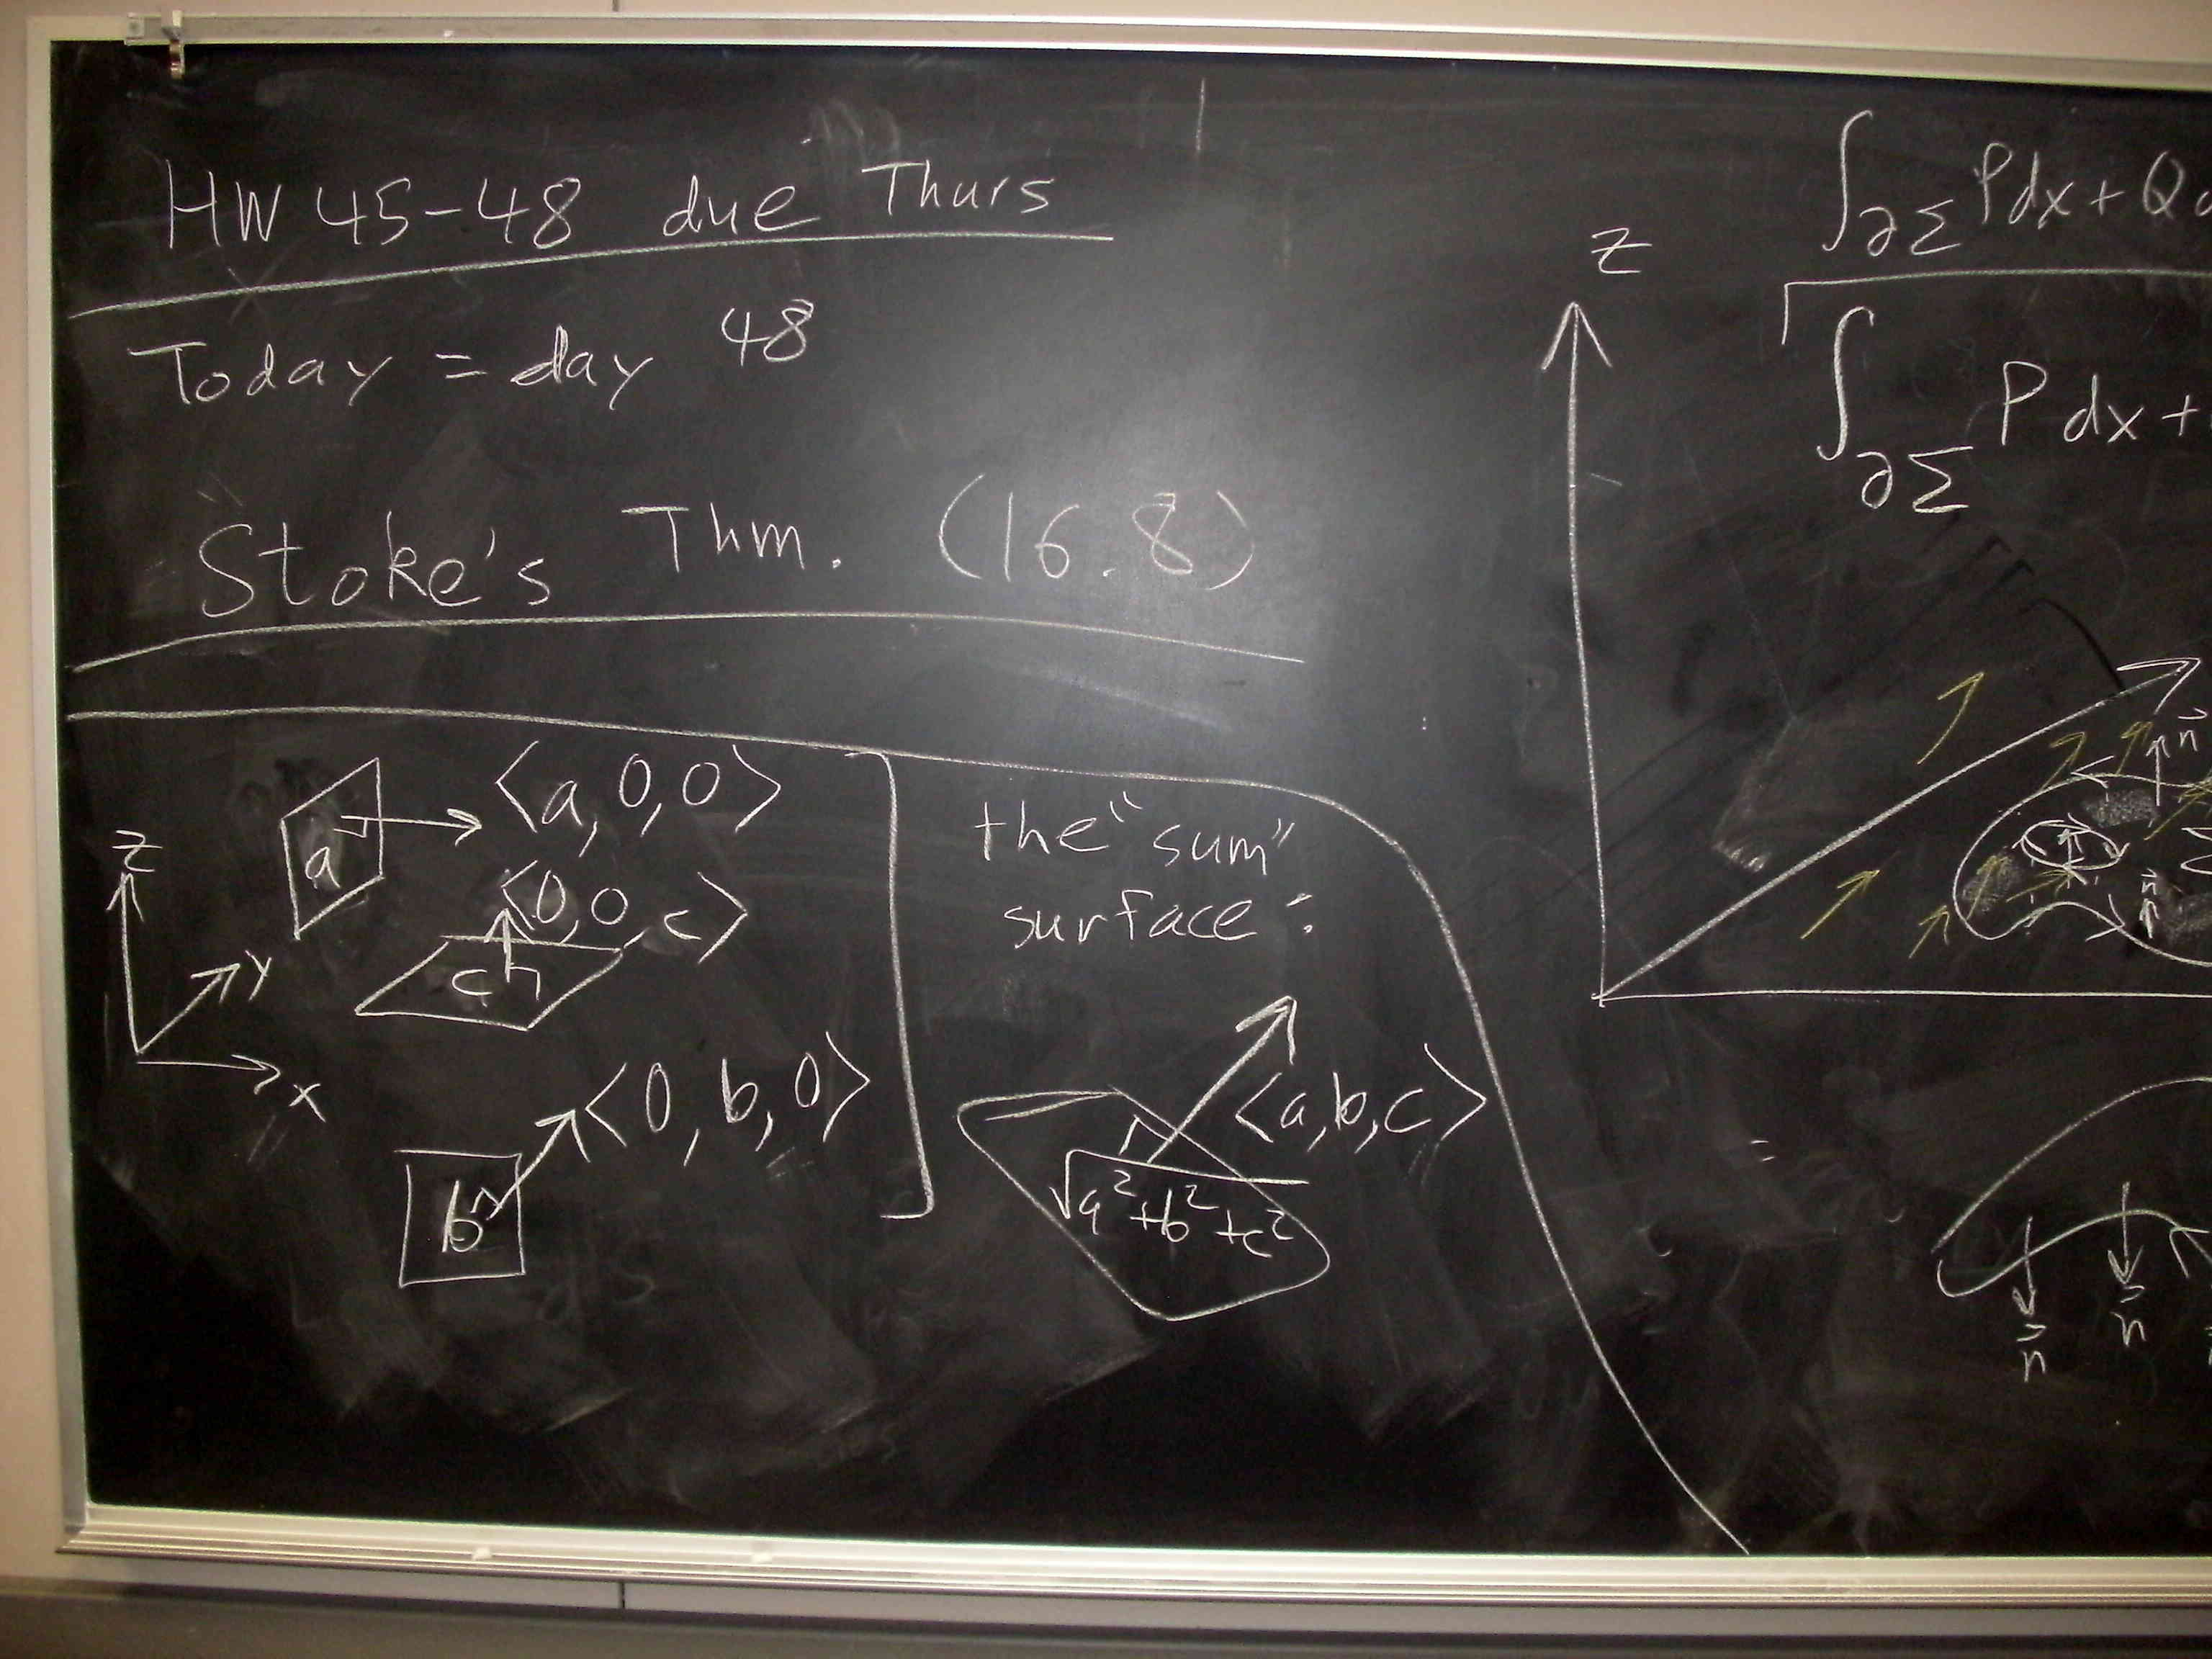 HW 45-48 due Thurs
Today = day 48
Stoke's Thm. (16.8)
z
y
x
a
<a, 0, 0>
<0, 0, c>
c
<0, b, 0>
b
the "sum"
surface:
<a, b, c>
√a²+b²+c²
∫∂Σ Pdx + Q
∫∂Σ P dx +
z
n⃗
n⃗
Σ
=
n⃗
n⃗